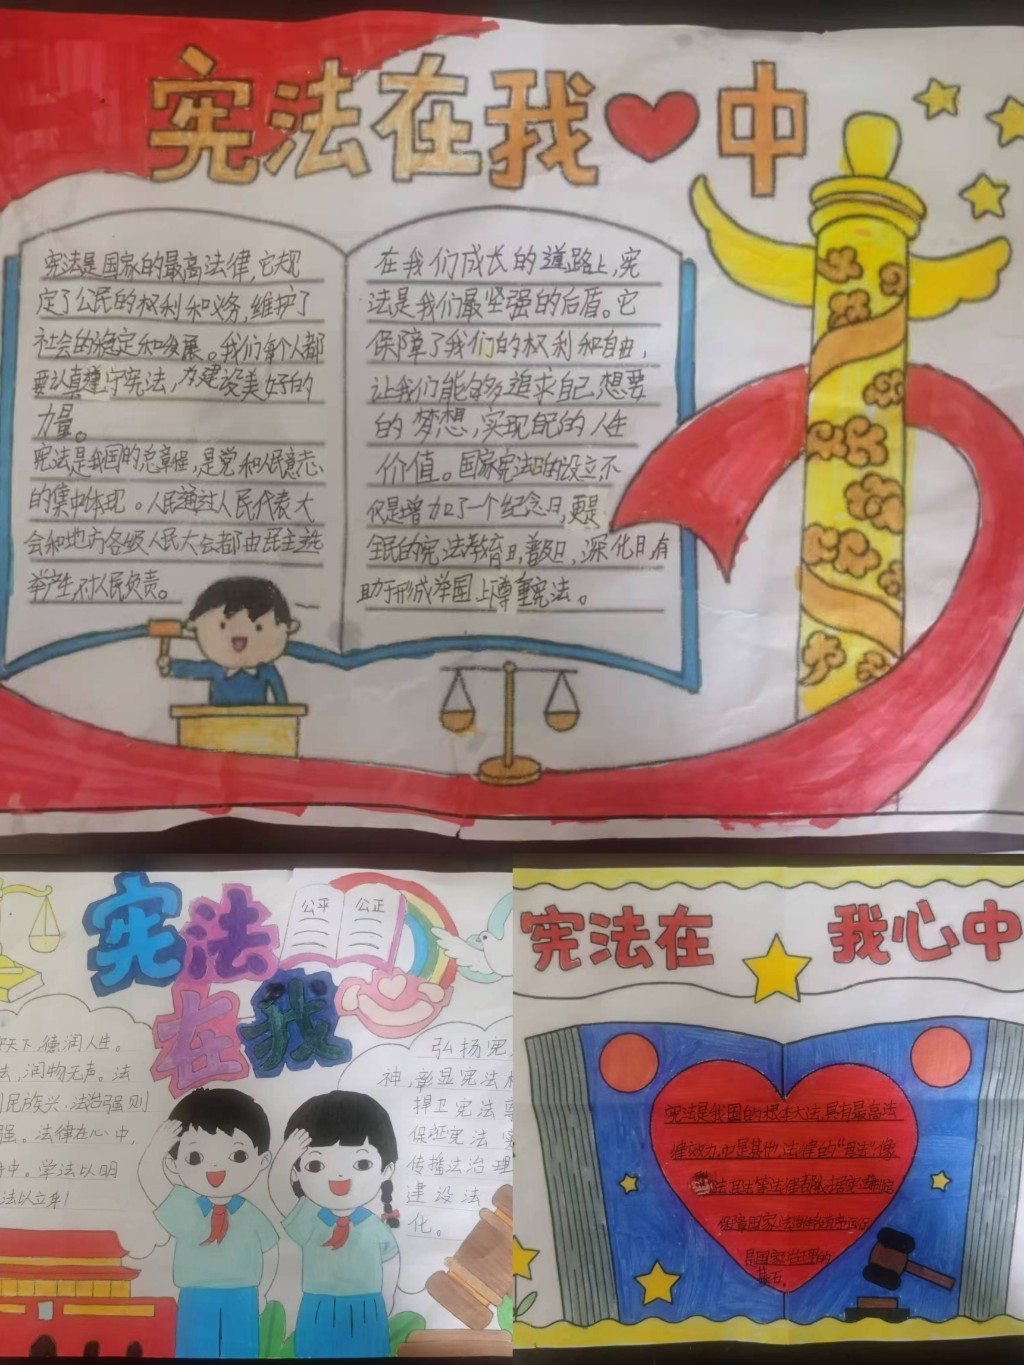 宪法在我中
宪法是国家的最高法律,它规
定了公民的权利和义务,维护了
社会的稳定和发展。我们每个人都
要认真遵守宪法,为建设美好的
力量。
宪法是我国的总章程,是党和人民意志
的集中体现。人民通过人民代表大
会和地方各级人民大会都由民主选
举产生,对人民负责。
在我们成长的道路上,宪
法是我们最坚强的后盾。它
保障了我们的权利和自由,
让我们能够多追求自己,想要
的梦想,实现自己的人生
价值。国家宪法日的设立,不
仅是增加了一个纪念日,更是
全民的宪法教育日,普及日,深化日,有
助于形成举国上尊重宪法。
宪法
在我
公平
公正
天下,德润人生。
法,润物无声。法
民族兴,法治强则
强。法律在心中,
中。学法以明
法以立身!
弘扬宪
神,彰显宪法
捍卫宪法
保证宪法
传播法治理
建设法
化。
宪法在 我心中
宪法是我国的根本大法,具有最高法
律效力,也是其他法律的“母法”像
保障国家法治的
是国家治理的
基石。